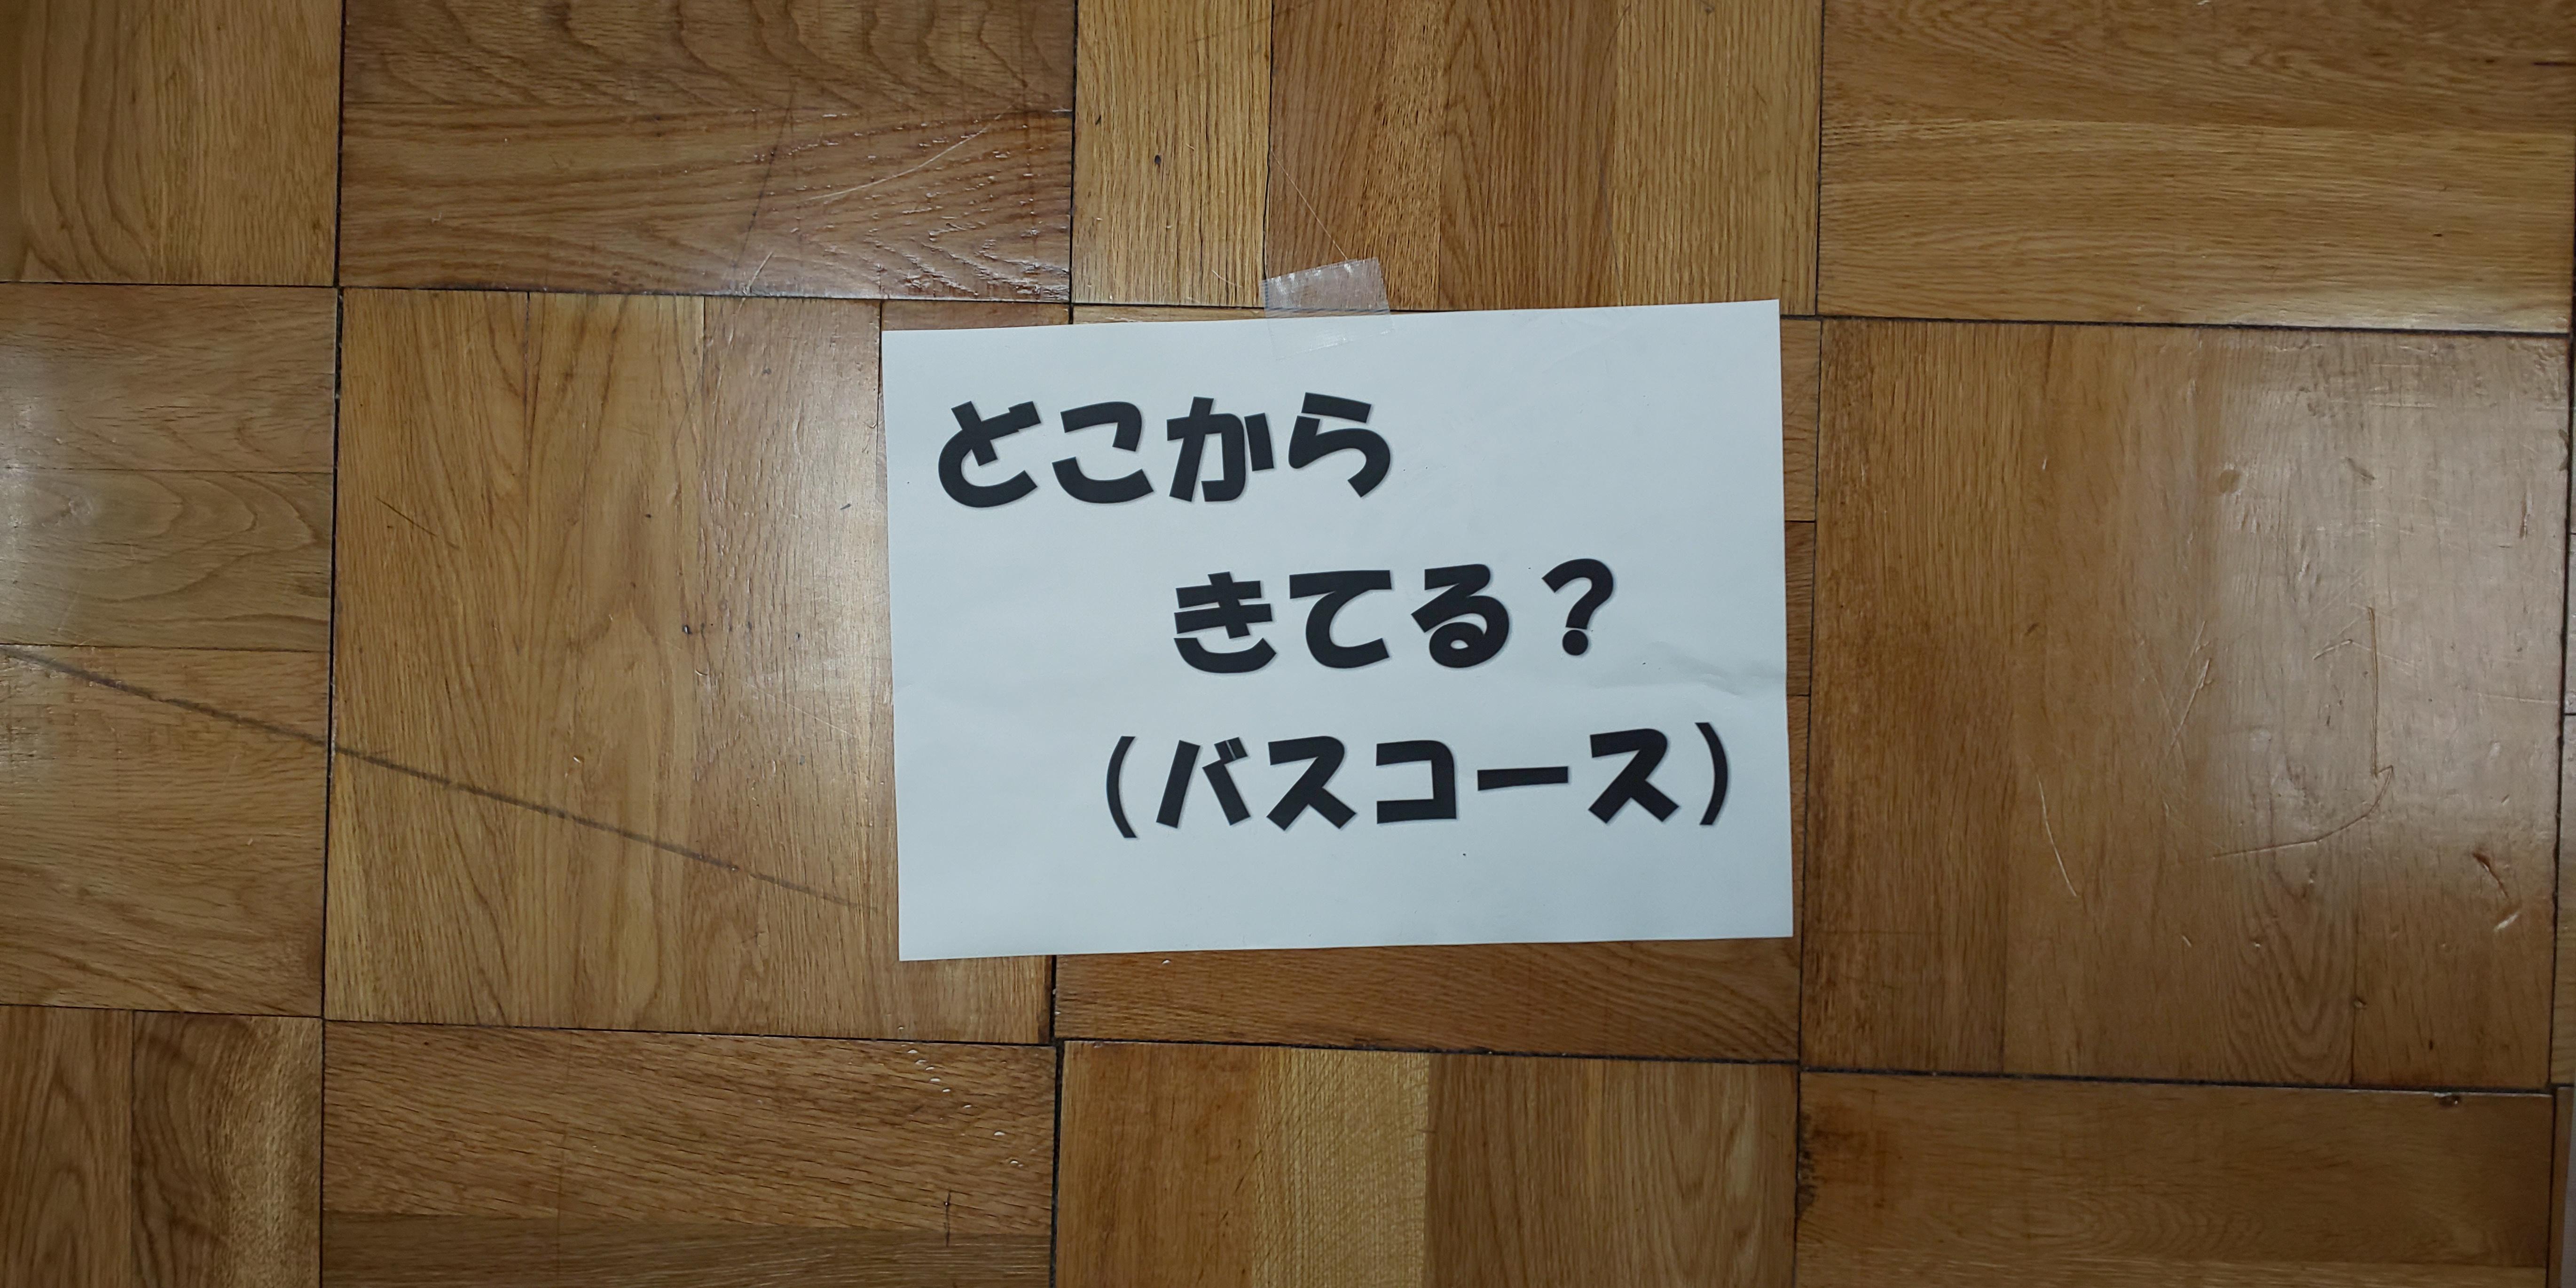 どこから
きてる？
（バスコース）